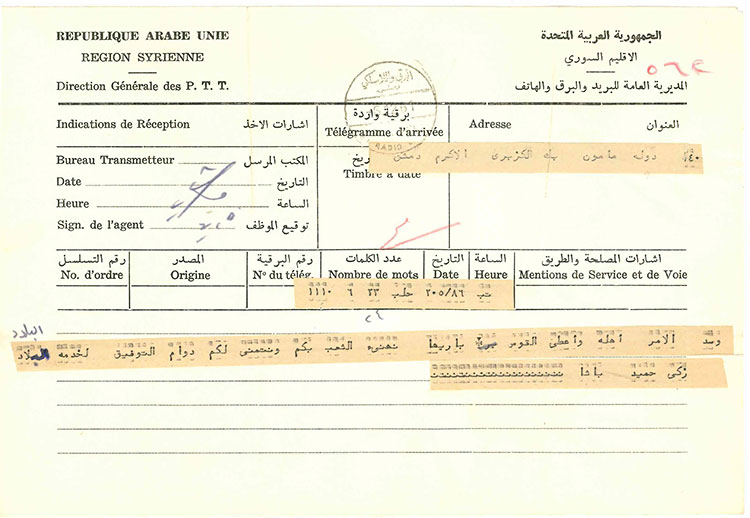 REPUBLIQUE ARABE UNIE
REGION SYRIENNE
Direction Générale des P. T. T.
الجمهورية العربية المتحدة
الاقليم السوري
المديرية العامة للبريد والبرق والهاتف
٥٦٢
RADIO
Indications de Réception اشارات الاخذ
برقية واردة
Télégramme d'arrivée
Adresse العنوان
٤٠ دوله مامون بك الكزبرى الاكرم دمشق
Bureau Transmetteur المكتب المرسل
Date التاريخ
Heure الساعة
Sign. de l'agent توقيع الموظف
Timbre à date
رقم التسلسل المصدر رقم البرقية عدد الكلمات التاريخ الساعة اشارات المصلحة والطريق
No. d'ordre Origine N° du télég. Nombre de mots Date Heure Mentions de Service et de Voie
٢٠٥/٨٦ حلب ٢٣ ٦ ١١١٠
البلاد
وسد الامر اهله وأعطى القوس باريها نهنىء الشعب بكم ونتمنى لكم دوام التوفيق لخدمه البلاد
زكى حميد باشا